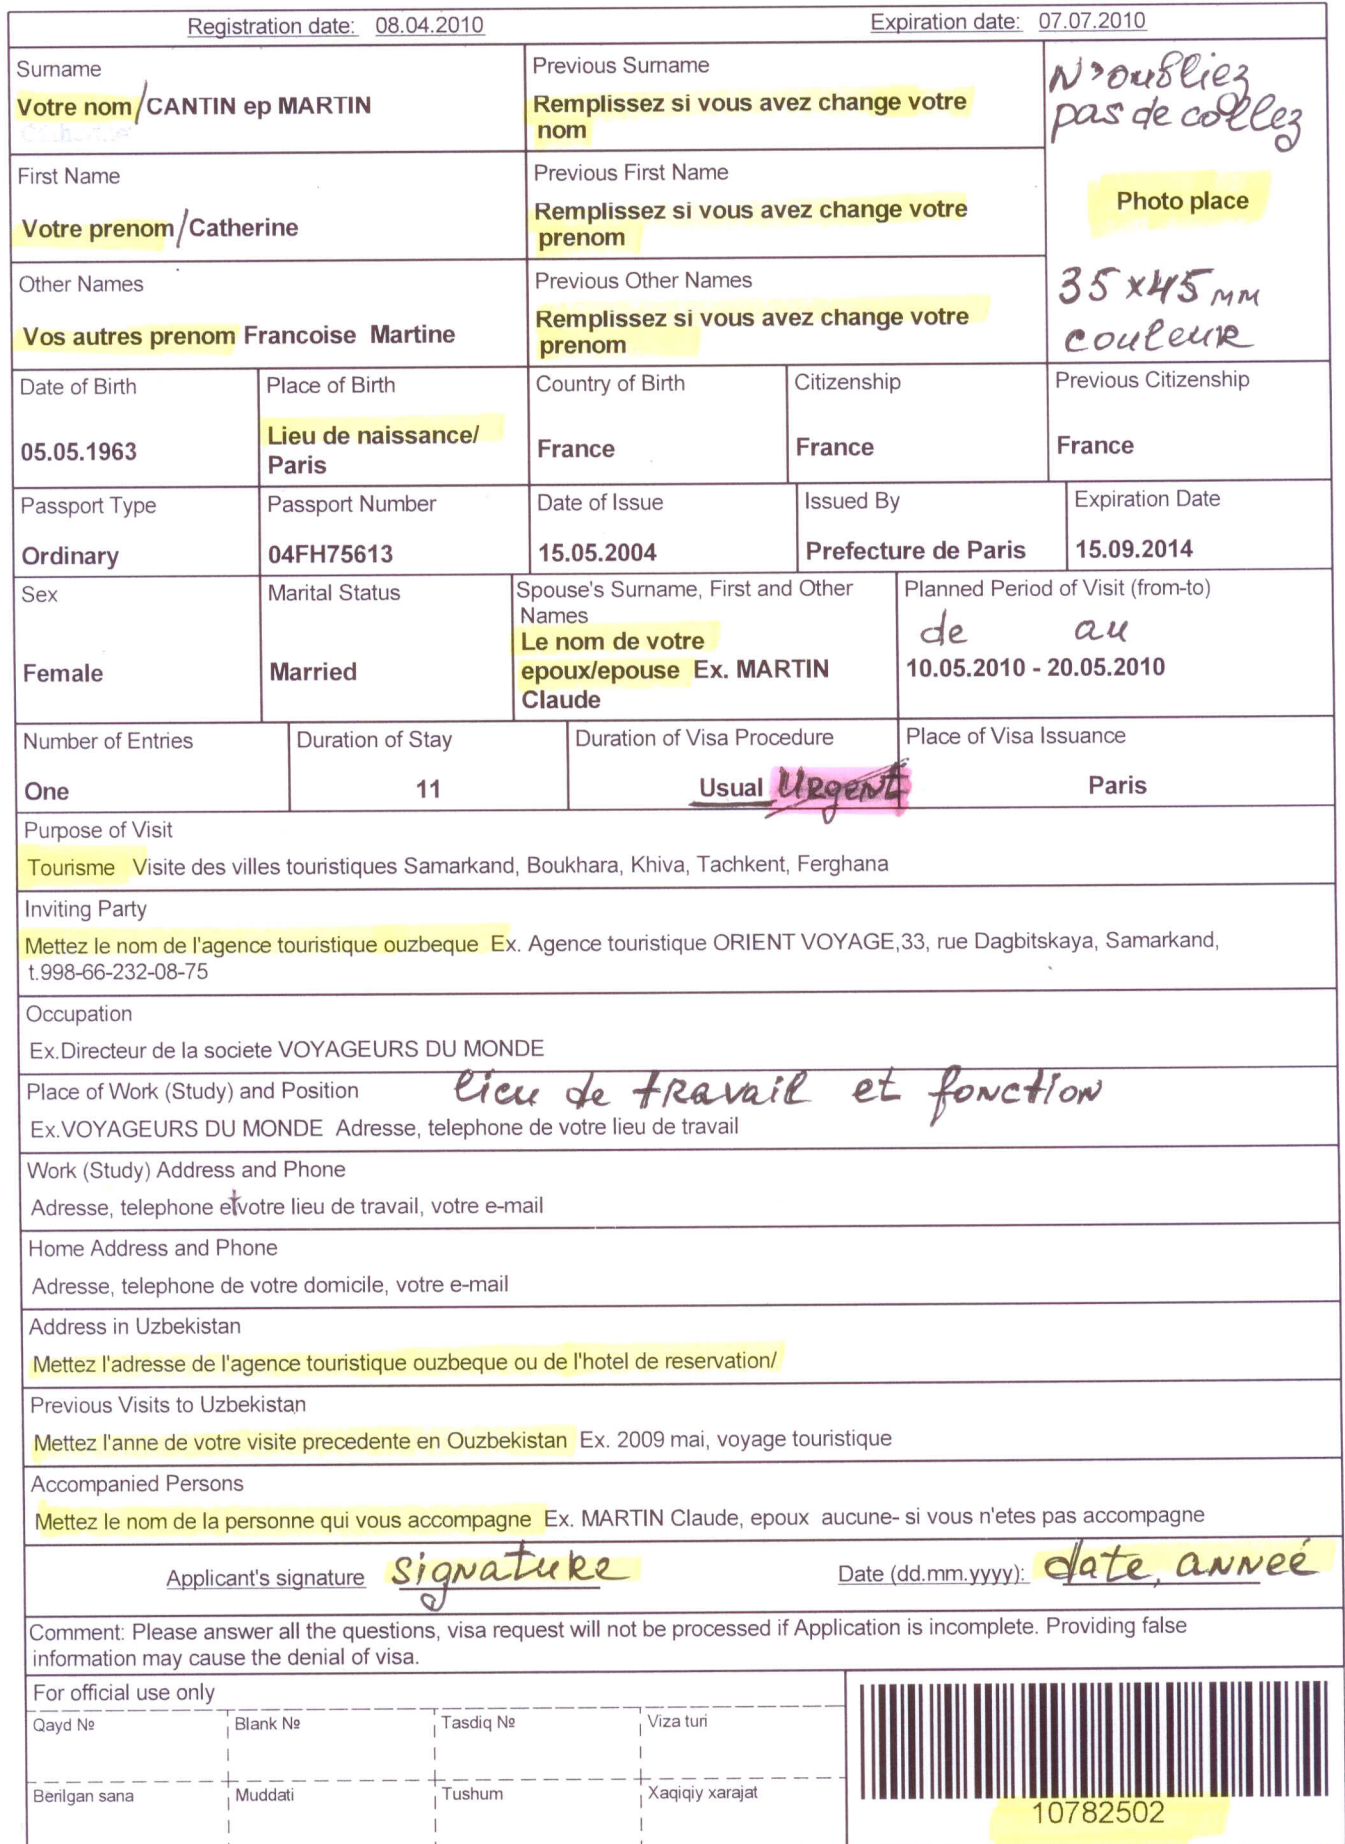 Registration date: 08.04.2010 Expiration date: 07.07.2010
Surname
Votre nom/CANTIN ep MARTIN
Previous Surname
Remplissez si vous avez change votre
nom
N'oubliez
pas de collez
First Name
Votre prenom/Catherine
Previous First Name
Remplissez si vous avez change votre
prenom
Photo place
Other Names
Vos autres prenom Francoise Martine
Previous Other Names
Remplissez si vous avez change votre
prenom
35x45 мм
couleur
Date of Birth
05.05.1963
Place of Birth
Lieu de naissance/
Paris
Country of Birth
France
Citizenship
France
Previous Citizenship
France
Passport Type
Ordinary
Passport Number
04FH75613
Date of Issue
15.05.2004
Issued By
Prefecture de Paris
Expiration Date
15.09.2014
Sex
Female
Marital Status
Married
Spouse's Surname, First and Other
Names
Le nom de votre
epoux/epouse Ex. MARTIN
Claude
Planned Period of Visit (from-to)
de au
10.05.2010 - 20.05.2010
Number of Entries
One
Duration of Stay
11
Duration of Visa Procedure
Usual Urgent
Place of Visa Issuance
Paris
Purpose of Visit
Tourisme Visite des villes touristiques Samarkand, Boukhara, Khiva, Tachkent, Ferghana
Inviting Party
Mettez le nom de l'agence touristique ouzbeque Ex. Agence touristique ORIENT VOYAGE,33, rue Dagbitskaya, Samarkand,
t.998-66-232-08-75
Occupation
Ex.Directeur de la societe VOYAGEURS DU MONDE
Place of Work (Study) and Position lieu de travail et fonction
Ex.VOYAGEURS DU MONDE Adresse, telephone de votre lieu de travail
Work (Study) Address and Phone
Adresse, telephone et votre lieu de travail, votre e-mail
Home Address and Phone
Adresse, telephone de votre domicile, votre e-mail
Address in Uzbekistan
Mettez l'adresse de l'agence touristique ouzbeque ou de l'hotel de reservation/
Previous Visits to Uzbekistan
Mettez l'anne de votre visite precedente en Ouzbekistan Ex. 2009 mai, voyage touristique
Accompanied Persons
Mettez le nom de la personne qui vous accompagne Ex. MARTIN Claude, epoux aucune- si vous n'etes pas accompagne
Applicant's signature signature Date (dd.mm.yyyy): date, anneé
Comment: Please answer all the questions, visa request will not be processed if Application is incomplete. Providing false
information may cause the denial of visa.
For official use only
Qayd № Blank № Tasdiq № Viza turi
Berilgan sana Muddati Tushum Xaqiqiy xarajat
10782502